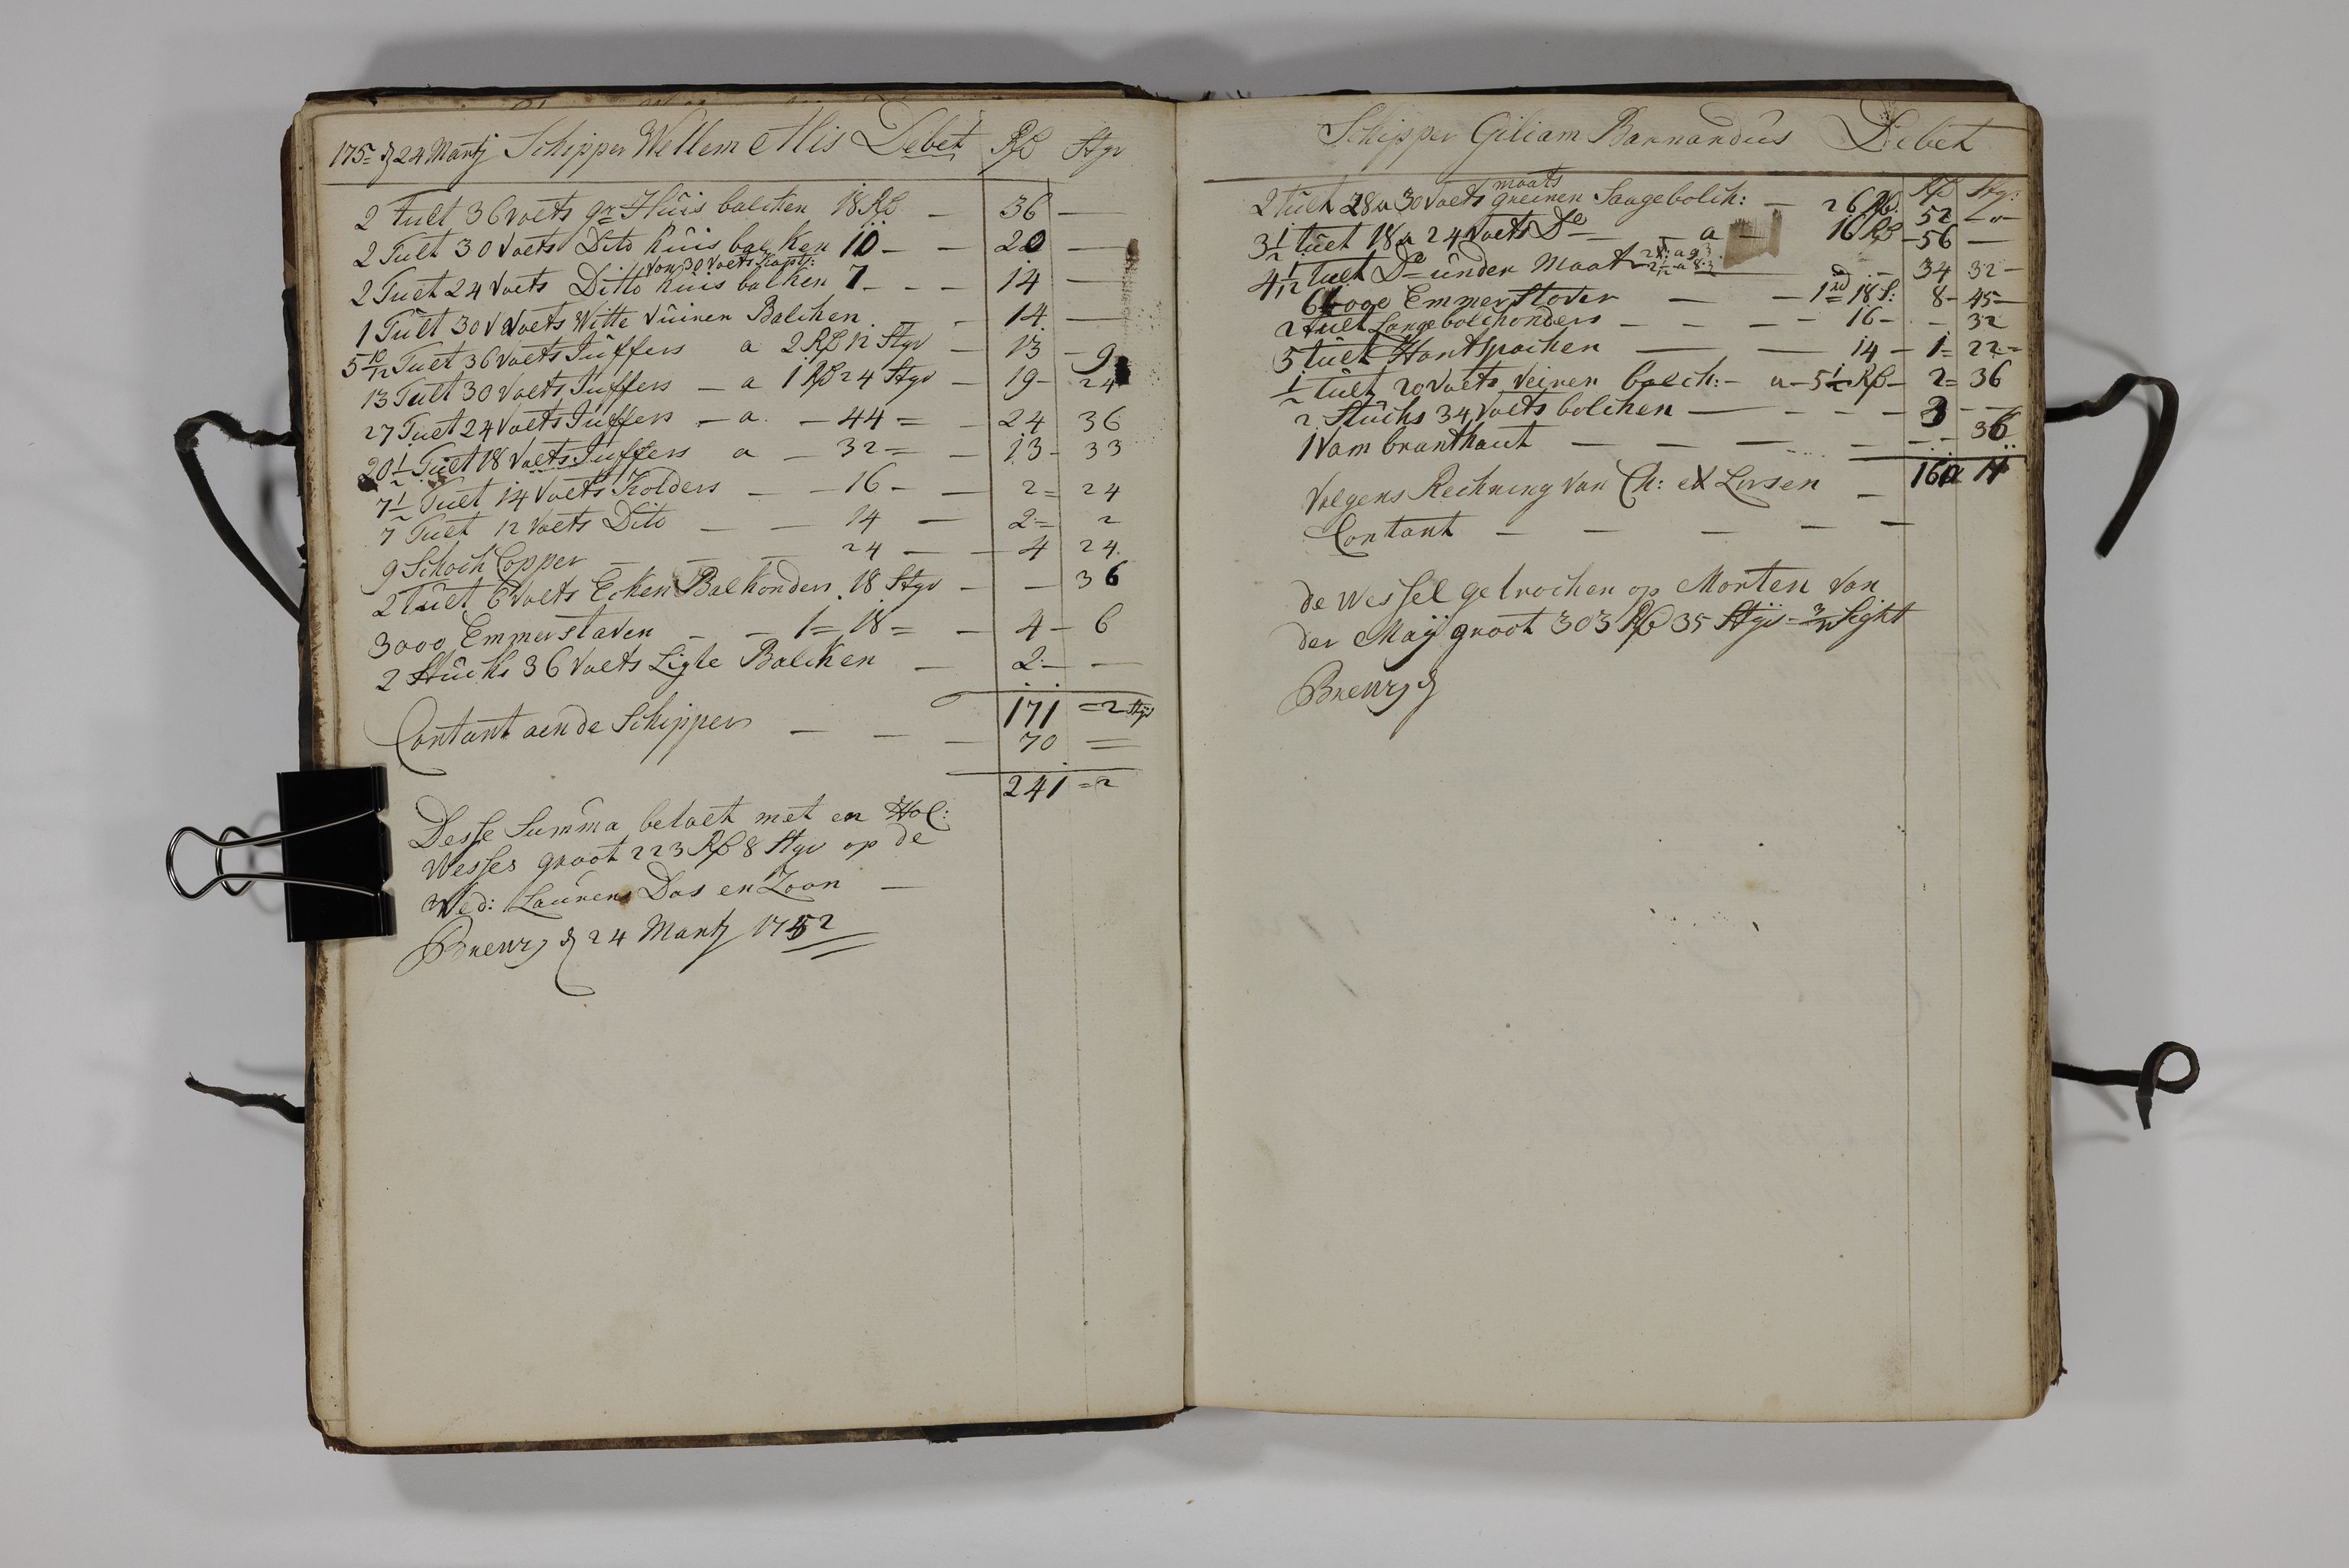 175= d 24 Martj Schipper Wellem Mis Debet Rß Stgv
2 Tult 36 voets gr= Hüis balcken 18 Rß — 36 —
2 Tult 30 voets Dito hüis balken 10 — — 20 —
von 30 voets
2 Tuet 24 voets Ditto hüis balken 7 — — — 14 —
1 Tült 30 voets Witte vüiren Balcken — — 14 —
5 10/12 Tuet 36 voets Jüffers a 2 Rß 12 Stgv — 13 — 9
13 Tult 30 voets Juffers — a 1 Rß 24 Stgv — 19 — 24
27 Tuet 24 voets Jüffers — a — 44 = — 24 36
20 1/2 Tüet 18 voets Juffers a — 32 = — 13 — 33
7 1/2 Tuet 14 voets Kolders — — 16 — — 2 = 24
7 Tuet 12 voets Dito — — 14 — 2 = 2
9 Schock Copper — — 24 — — 4 24
2 Tüet 6 voets Ecken Balkonders 18 Stgv — — 36
3000 Emmerstaven — — 1 = 18 = — 4 — 6
2 Stücks 36 voets Ligte Balcken — 2 — —
171 = 2 Stgv
Contant aen de Schipper — — — 70 =
241 = 2
Desse Summa betaelt met en Hol:
Wessel groot 223 Rß 8 Stgv op de
Wed: Laürens Das en Zoon —
Brewz d 24 Martj 1752
Schipper Giliam Barnardüs Debet
maats Rß Stgv:
2 tült 28 a 30 voets greinen Saagebolck: — 26 Rß: 52 —
3 1/2 tüet 18 a 24 voets Do — — a — 16 Rß — 56 —
4 1/12 tuet Do ünder Maat — 34 32 —
6000 Emmer Staver — — 1 = 18 S: 8 — 45 —
2 tült Lange bolckonders — — — — 16 — — 32
5 tüet Hantspacken — — 14 — 1 = 22 =
1/2 tült 20 voets veiren balck: — a — 5 1/2 Rß — 2 = 36
2 Stücks 34 voets bolcken — — — — 3 — —
1 Vam branthout — — — — — 36
Volgens Rechning van Ch: et Lorsen — 160 11
Contant — — — — —
de Wessel getrocken op Morten van
der Maÿ groot 303 Rß 35 Stÿv Sight
Brewz d